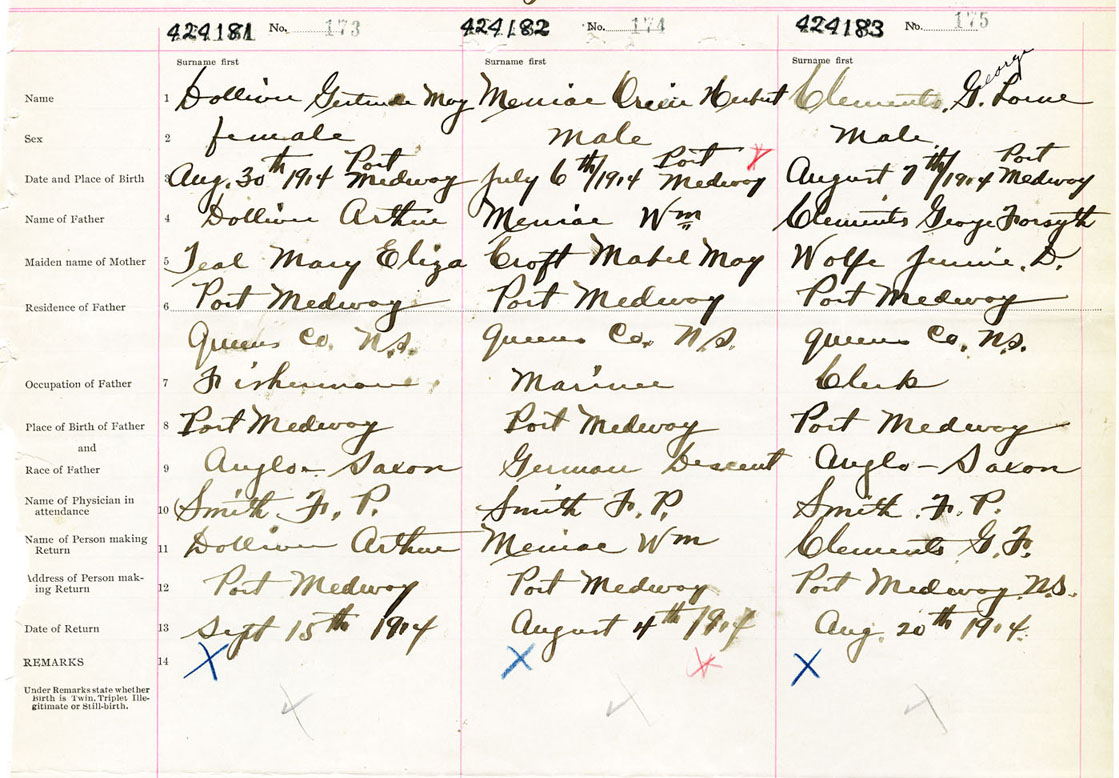 424181 No. 173 424182 No. 174 424183 No. 175
Surname first Surname first Surname first
George
Name 1 Dolliver Gertrude May Meniae Herbert Clements, G. Lorne
Sex 2 female Male Male
Port Port Port
Date and Place of Birth 3 Aug. 30th 1904 Medway July 6th/1904 Medway August 7th/1904 Medway
Name of Father 4 Dolliver Arthur Meniae Wm Clements George Forsyth
Maiden name of Mother 5 Teal Mary Eliza Croft Mabel May Wolfe Jennie. D.
Residence of Father 6 Port Medway Port Medway Port Medway
Queens Co. N.S. Queens Co. N.S. Queens Co. N.S.
Occupation of Father 7 Fisherman Mariner Clerk
Place of Birth of Father 8 Port Medway Port Medway Port Medway
and
Race of Father 9 Anglo-Saxon German Descent Anglo-Saxon
Name of Physician in
attendance 10 Smith F. P. Smith F. P. Smith F. P.
Name of Person making
Return 11 Dolliver Arthur Meniae Wm Clements G. F.
Address of Person mak-
ing Return 12 Port Medway Port Medway Port Medway N.S.
Date of Return 13 Sept 15th 1904 August 4th 1904 Aug. 20th 1904.
REMARKS 14 X X X X
Under Remarks state whether
Birth is Twin, Triplet Ille-
gitimate or Still-birth.